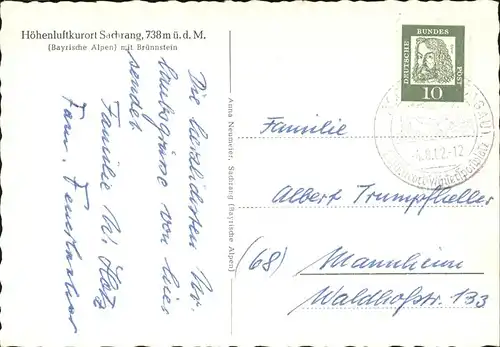 Höhenluftkurort Sachrang, 738 m ü. d. M.
(Bayrische Alpen) mit Brünnstein
Die herzlichsten Ur-
laubsgrüsse von hier
sendet
Familie W. Hotz
Fam.
Anna Neumeier, Sachrang (Bayrische Alpen)
DEUTSCHE BUNDES POST
10
Familie
Albert Trumpfheller
(68) Mannheim
Waldhofstr. 133